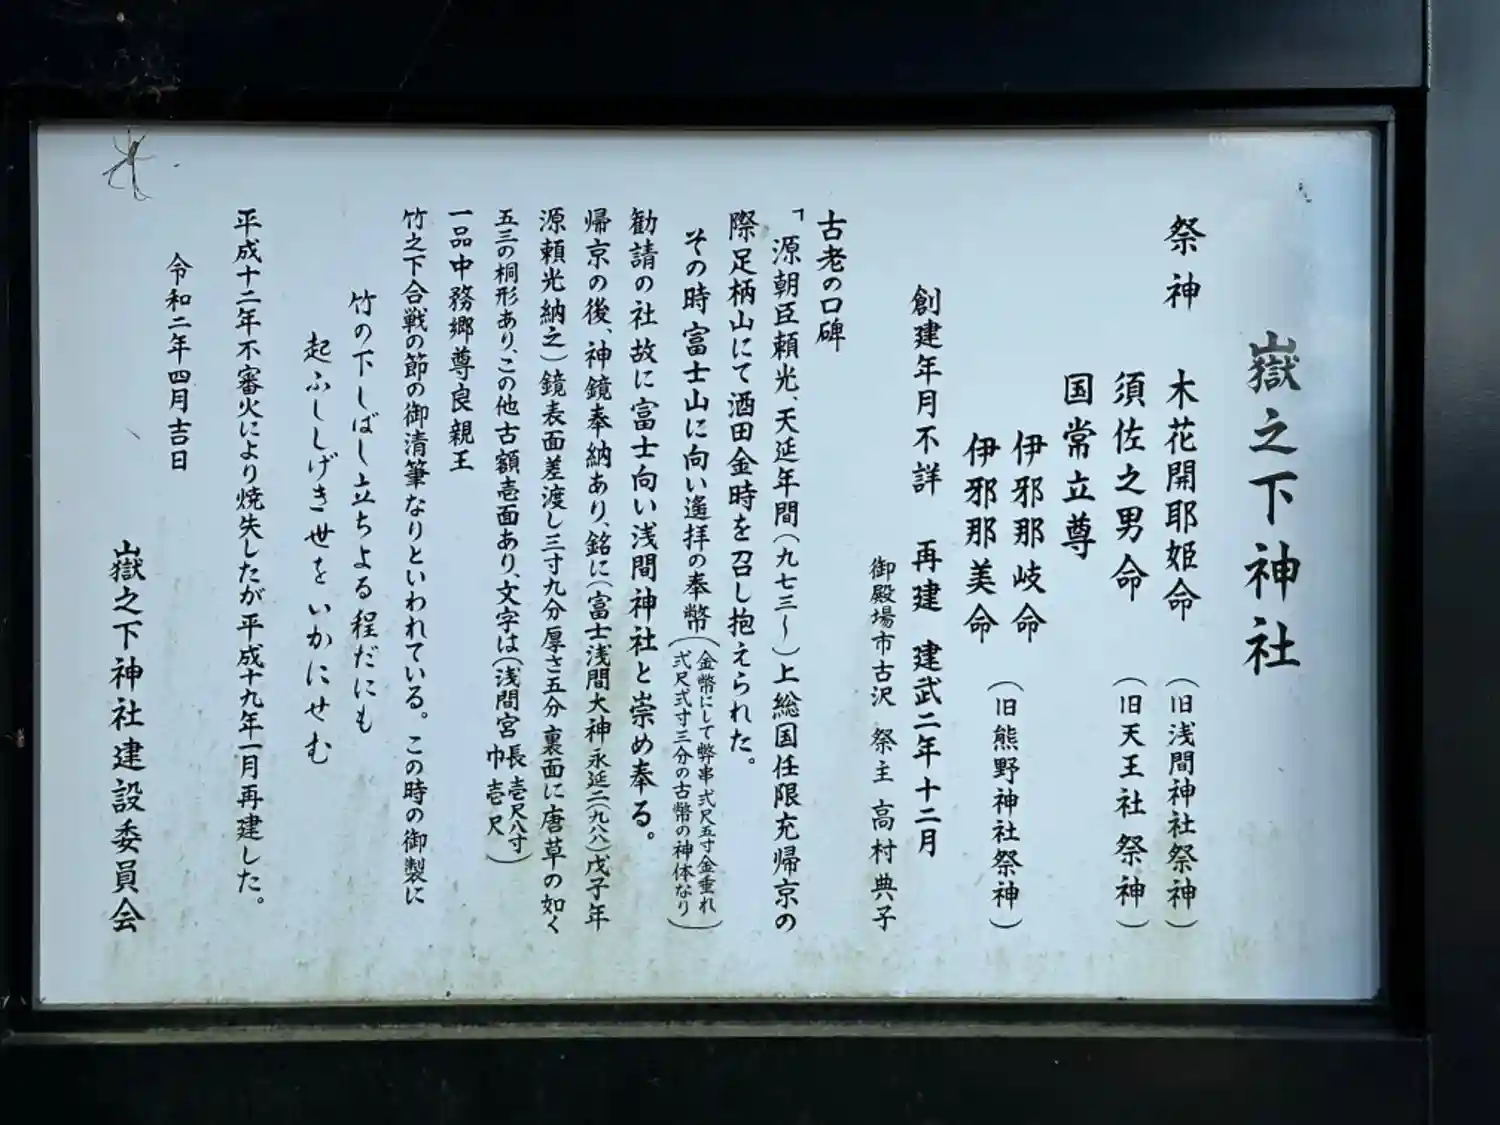 嶽之下神社
祭神　木花開耶姫命　（旧浅間神社祭神）
須佐之男命　（旧天王社　祭神）
国常立尊
伊邪那岐命
伊邪那美命
（旧熊野神社祭神）
創建年月不詳　再建　建武二年十二月
御殿場市古沢　祭主　高村典子
古老の口碑
「源朝臣頼光、天延年間（九七三〜）上総国任限充帰京の
際足柄山にて酒田金時を召し抱えられた。
その時富士山に向い遙拝の奉幣（金幣にして弊串弐尺五寸金垂れ
弐尺弐寸三分の古幣の神体なり）
勧請の社故に富士向い浅間神社と崇め奉る。
帰京の後、神鏡奉納あり、銘に（富士浅間大神永延二（九八八）戊子年
源頼光納之）鏡表面差渡し三寸九分厚さ五分裏面に唐草の如く
五三の桐形あり、この他古額壱面あり、文字は（浅間宮　長壱尺八寸
巾壱尺）
一品中務郷尊良親王
竹之下合戦の節の御清筆なりといわれている。この時の御製に
竹の下しばし立ちよる程だにも
起ふししげき世をいかにせむ
平成十二年不審火により焼失したが平成十九年一月再建した。
令和二年四月吉日
嶽之下神社建設委員会